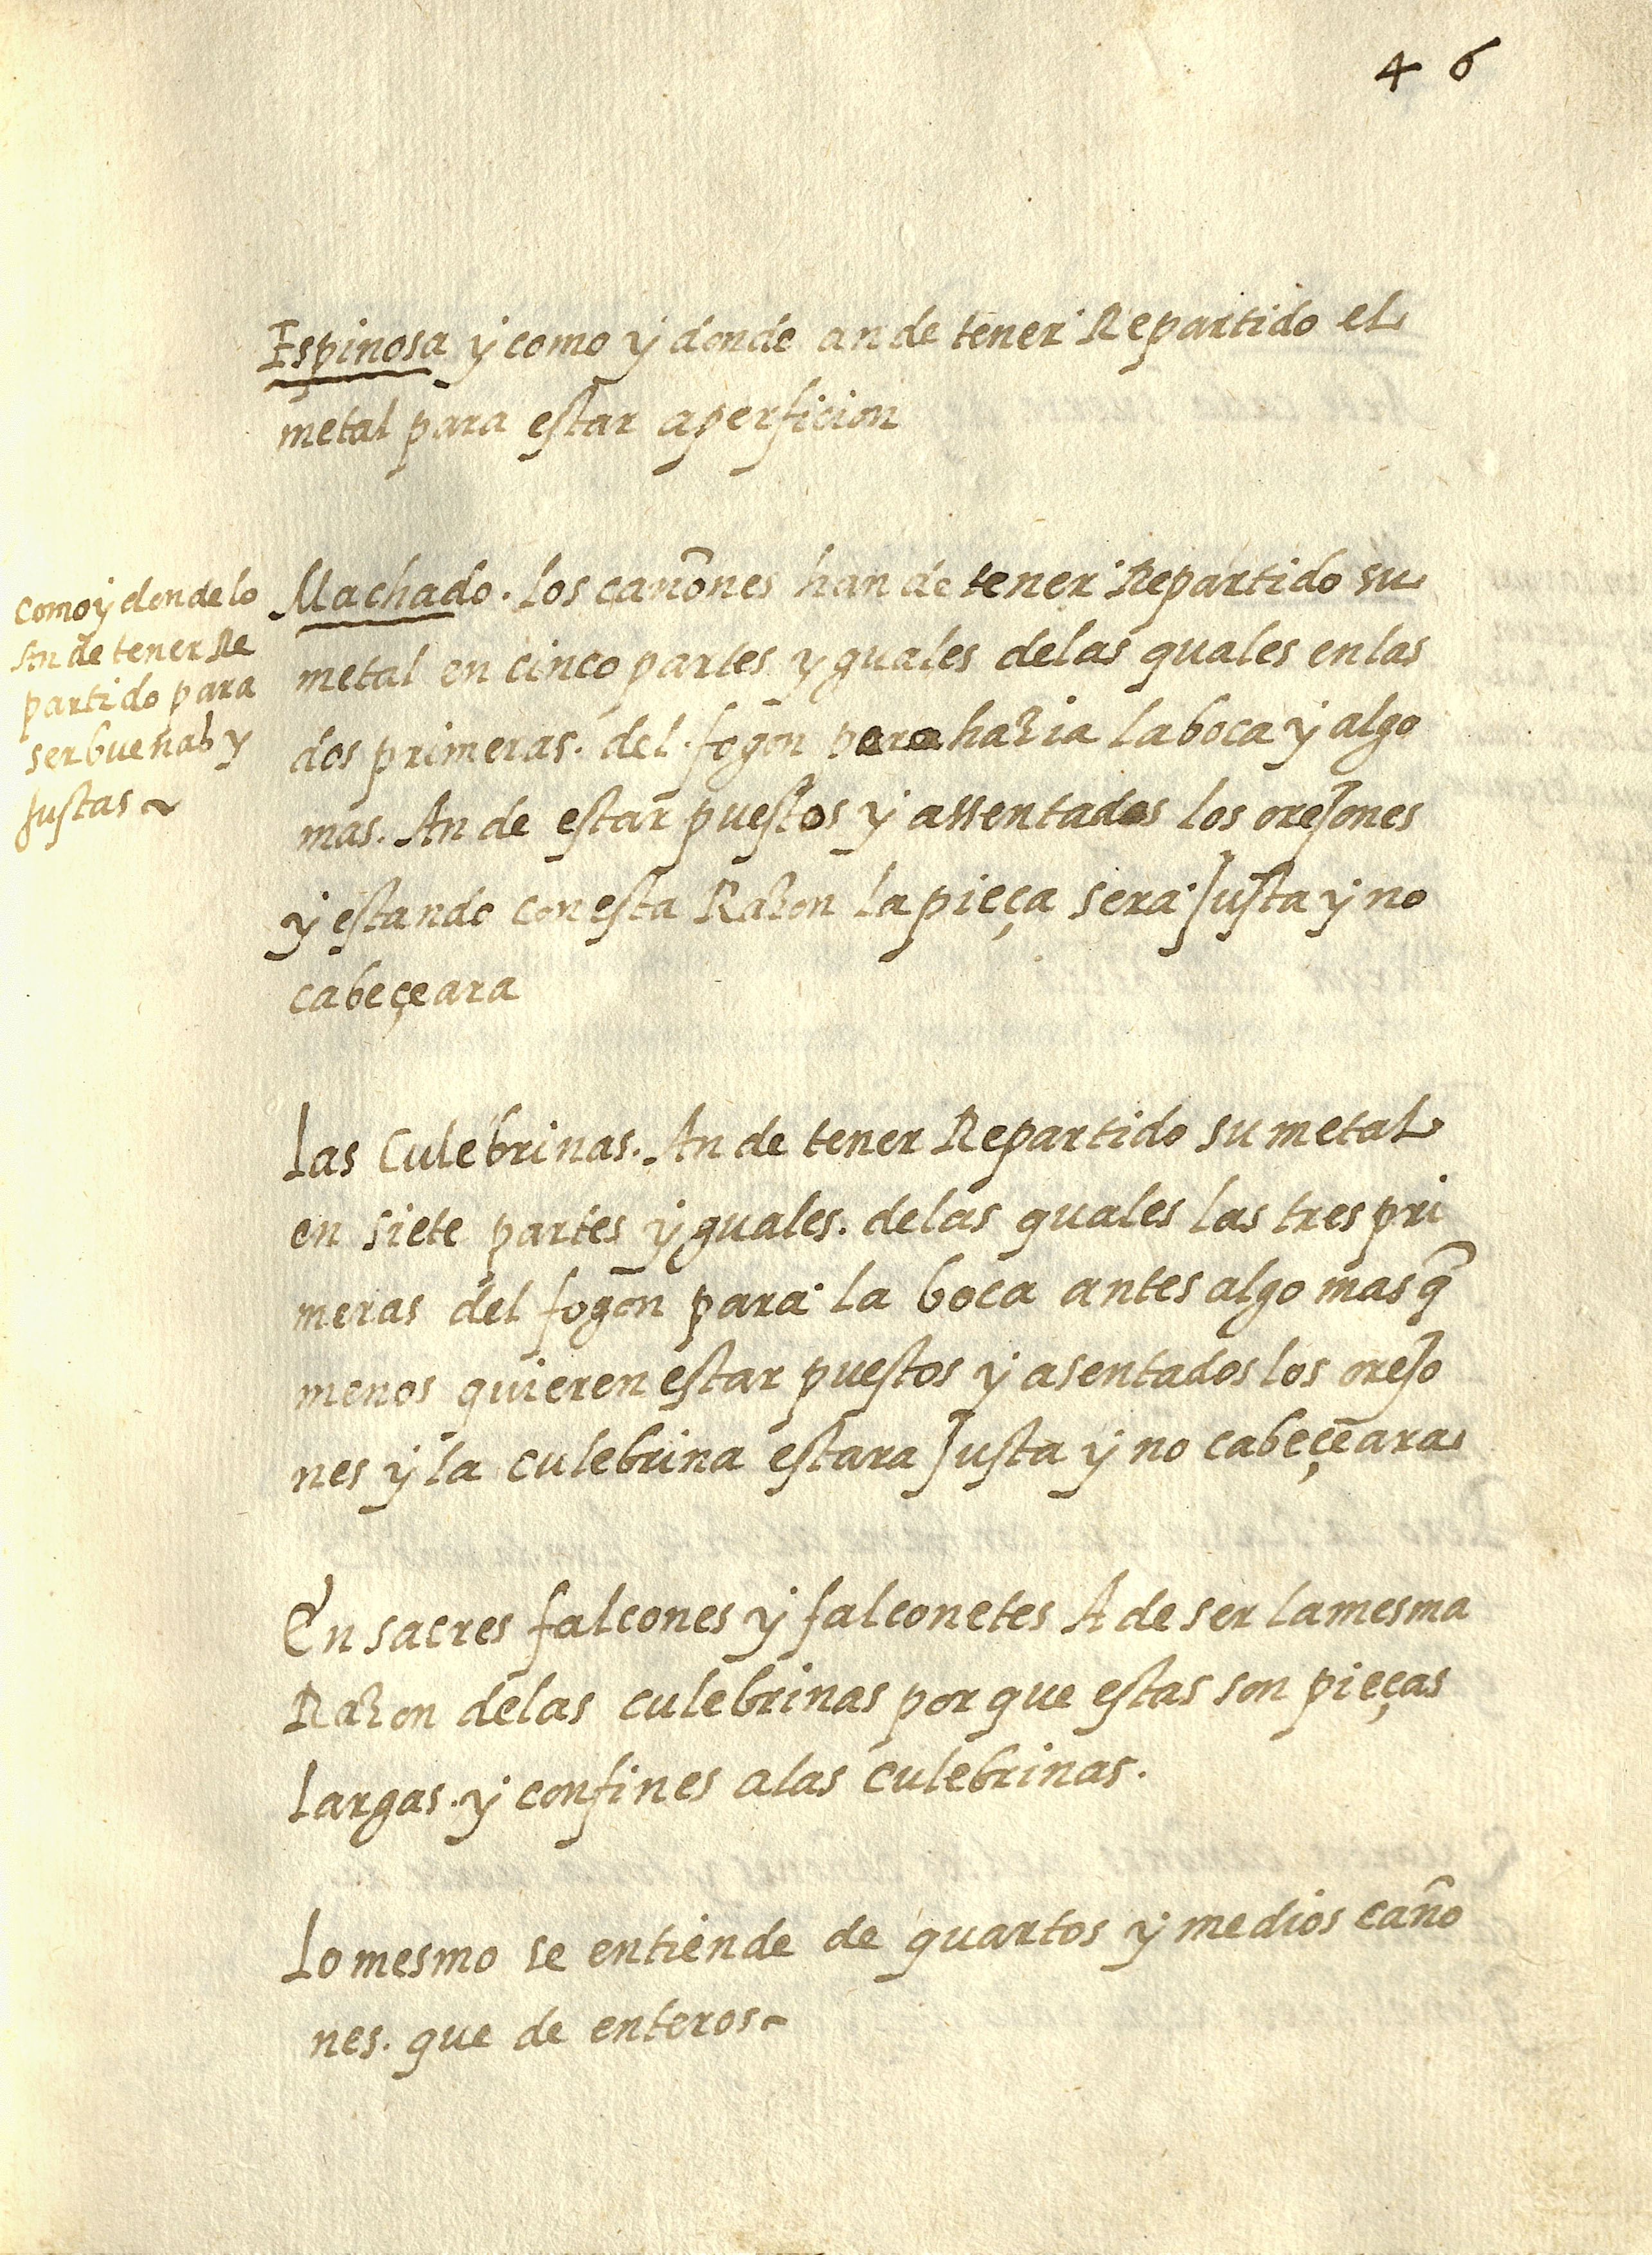 46
Espinosa y como y donde an de tener Repartido el
metal para estar aperficion
como y donde lo
An de tener Re
partido para
ser buenas y
Justas
Machado. los cañones han de tener Repartido su
metal en cinco partes yguales delas quales en las
dos primeras. del fogon para hazia la boca y algo
mas. An de estar puestos y assentados los orejones
y estando con esta Razon la pieça sera Justa y no
cabeçeara
Las Culebrinas. An de tener Repartido su metal
en siete partes yguales. delas quales las tres pri
meras del fogon para la boca antes algo mas q̃
menos quieren estar puestos y asentados los orejo
nes y la culebrina estara Justa y no cabeçeara
En sacres falcones y falconetes A de ser la mesma
Razon delas culebrinas por que estas son pieças
largas. y confines alas culebrinas.
Lo mesmo se entiende de quartos y medios caño
nes. que de enteros